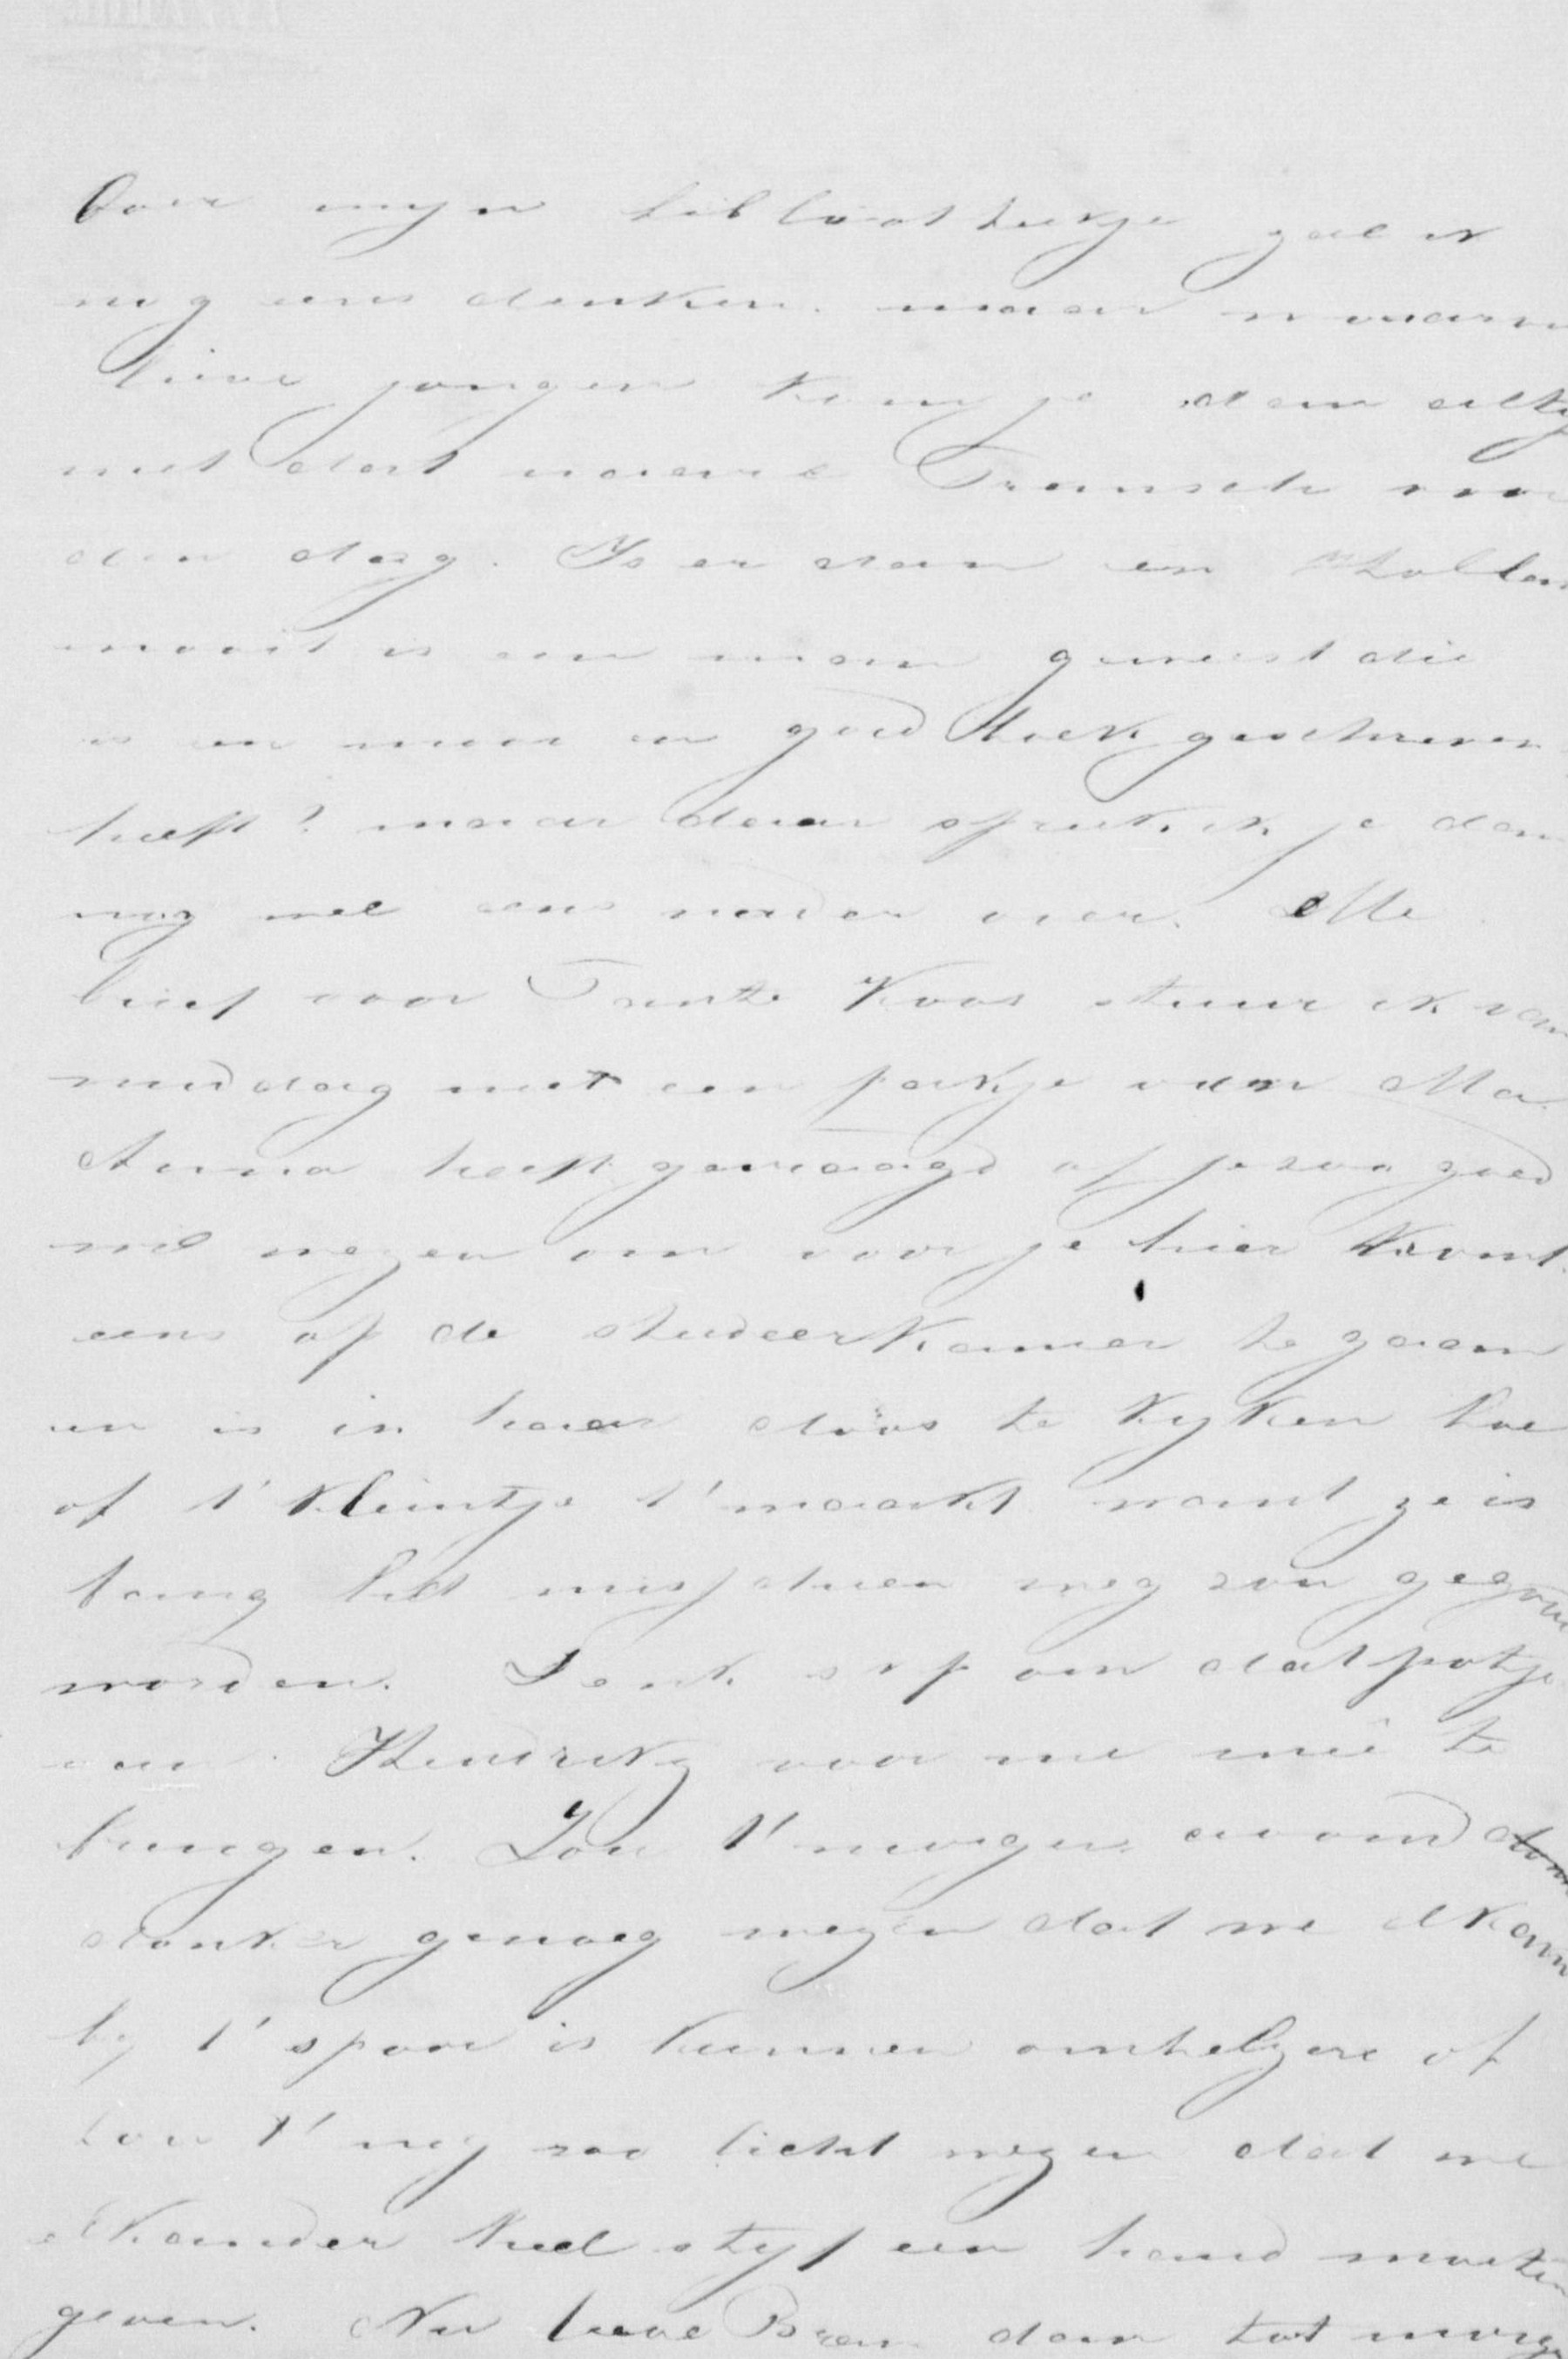 Over myn bibliootheekje zal ik
nog eens denken. maar waarom
lieve jongen kom je dan altyd
met dat nare Fransch voor
den dag. Is er dan in Holland
nooit is een man geweest die
is een mooi en goed boek geschreven
heeft? maar daar spreek ik je dan
nog wel eens nader over. De
brief voor Tante Koos stuur ik van
middag met een pakje van Ma.
Anna heeft gevraagd of je zoo goed
wil wezen om voor je hier komt
eens op de studeerkamer te gaan
en is in haar doos te kyken hoe
of t' kleintje t' maakt want ze is
bang dat misschien weg zou gegooid
worden. Denk erop om dat potje
van Hendrik voor me meê te
brengen. Zou t' morgen avond
donker genoeg wezen dat we elkaar
by t' spoor is kunnen omhelzen of
zou t' nog zoo licht wezen dat we
elkander heel styf een hand moeten
geven. Nu lieve Bram dan tot morgen